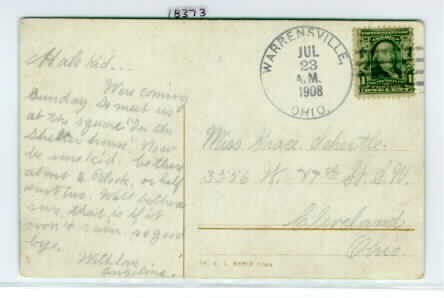 18373
Hale kid...
Were coming
Sunday so meet us
at the square "In the
Shelter house". Now
be sure kid. be there
about 2 O'clock, or half
past two. We'll be there
sure, that is if it
won't rain, so good
bye.
With love
Angeline.
WARRENSVILLE,
JUL
23
A.M.
1908
OHIO.
Miss Grace
3556 W. 
Cleveland
Ohio.